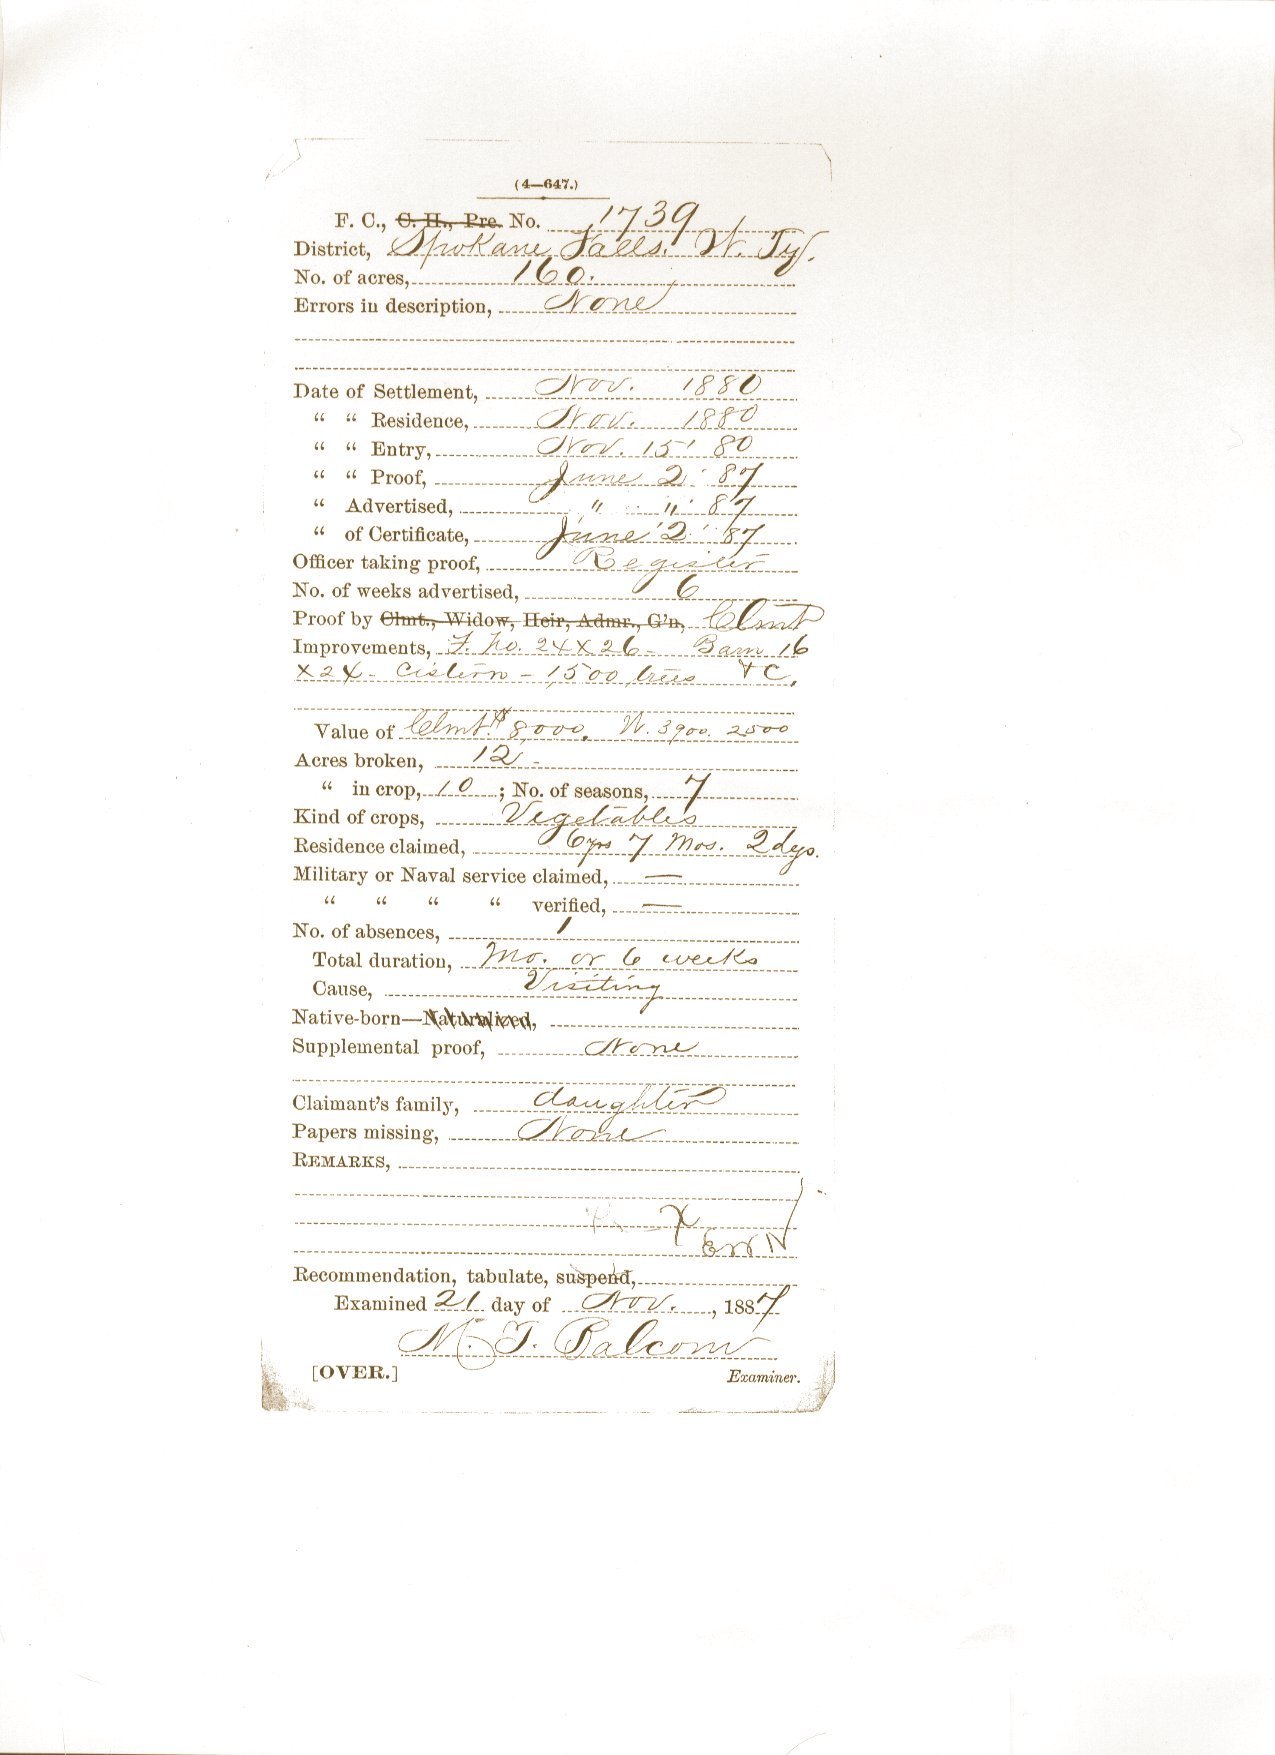 (4—647.)
F. C., C. H., Pre. No. 1739
District, Spokane Falls. W. Ty.
No. of acres, 160.
Errors in description, None
Date of Settlement, Nov. 1880
“ “ Residence, Nov. 1880
“ “ Entry, Nov. 15' 80
“ “ Proof, June 2 ' 87
“ Advertised, " " ' 87
“ of Certificate, June 2 ' 87
Officer taking proof, Register
No. of weeks advertised, 6
Proof by Clmt., Widow, Heir, Admr., G'n, Clmt
Improvements, F. ho. 24 X 26 - Barn 16
X 24 - Cistern - 1,500 trees & C.
Value of Clmt. $8,000. W. 3900. 2500
Acres broken, 12 -
“ in crop, 10 ; No. of seasons, 7
Kind of crops, Vegetables
Residence claimed, 6 yrs 7 Mos. 2 dys.
Military or Naval service claimed, —
“ “ “ “ verified, —
No. of absences, 1
Total duration, Mo. or 6 weeks
Cause, Visiting
Native-born—Naturalized,
Supplemental proof, None
Claimant's family, daughter
Papers missing, None
REMARKS,
X
Recommendation, tabulate, suspend,
Examined 21 day of Nov. , 1887
M. T. Balcom
[OVER.] Examiner.